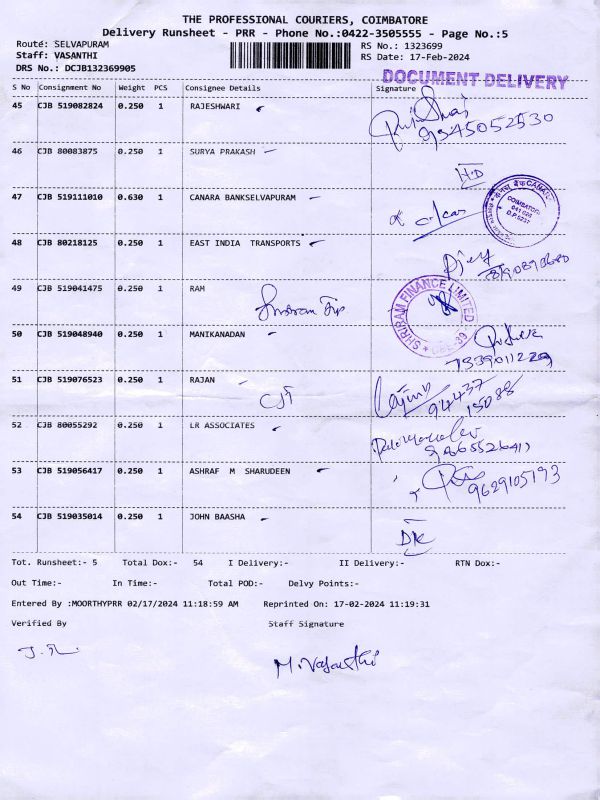 THE PROFESSIONAL COURIERS, COIMBATORE
Delivery Runsheet - PRR - Phone No.:0422-3505555 - Page No.:5
Route: SELVAPURAM RS No.: 1323699
Staff: VASANTHI RS Date: 17-Feb-2024
DRS No.: DCJB132369905
DOCUMENT DELIVERY
S No Consignment No Weight PCS Consignee Details Signature
45 CJB 519082824 0.250 1 RAJESHWARI
9345052530
46 CJB 80083875 0.250 1 SURYA PRAKASH
H.D
47 CJB 519111010 0.630 1 CANARA BANKSELVAPURAM
COIMBATORE
48 CJB 80218125 0.250 1 EAST INDIA TRANSPORTS
49 CJB 519041475 0.250 1 RAM
SHRIRAM FINANCE LIMITED
CBE-39
50 CJB 519048940 0.250 1 MANIKANADAN
7339011229
51 CJB 519076523 0.250 1 RAJAN
94437
15088
52 CJB 80055292 0.250 1 LR ASSOCIATES
53 CJB 519056417 0.250 1 ASHRAF M SHARUDEEN
9629105193
54 CJB 519035014 0.250 1 JOHN BAASHA
DK
Tot. Runsheet:- 5 Total Dox:- 54 I Delivery:- II Delivery:- RTN Dox:-
Out Time:- In Time:- Total POD:- Delvy Points:-
Entered By :MOORTHYPRR 02/17/2024 11:18:59 AM Reprinted On: 17-02-2024 11:19:31
Verified By Staff Signature
M.Vasanthi